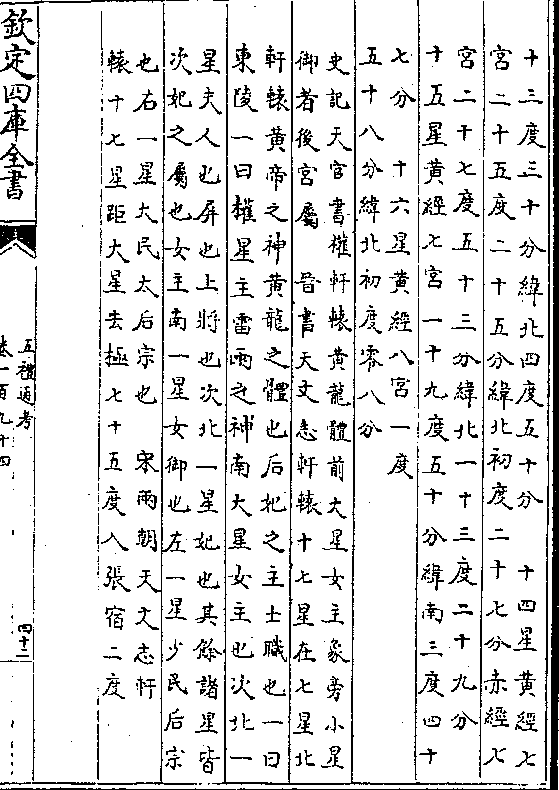 十三度三十分緯北四度五十分　十四星黃經七
宮二十五度二十五分緯北初度二十七分赤經七
宮二十七度五十三分緯北一十三度二十九分
十五星黃經七宮一十九度五十分緯南三度四十
七分　十六星黃經八宮一度
五十八分緯北初度零八分
史記天官書權軒轅黃龍體前大星女主象旁小星
御者後宮屬　晉書天文志軒轅十七星在七星北
軒轅黃帝之神黃龍之體也后妃之主士職也一曰
東陵一曰權星主雷雨之神南大星女主也次北一
星夫人也屏也上將也次北一星妃也其餘諸星皆
次妃之屬也女主南一星女御也左一星少民后宗
也右一星大民太后宗也　宋兩朝天文志軒
轅十七星距大星去極七十五度入張宿二度
欽定四庫全書
五禮通考
卷一百九十四
四十二